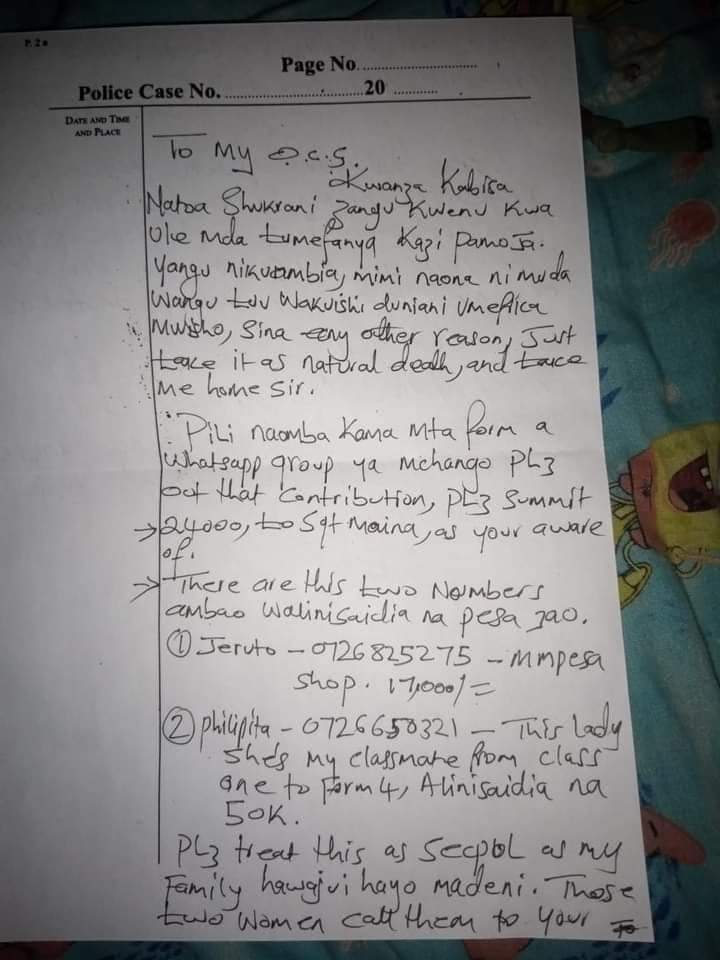 P. 2 a
Page No. ................................
Police Case No. ........................................20 ............
DATE AND TIME
AND PLACE
To My O.C.S.
Kwanza Kabisa
Natoa Shukrani Zangu Kwenu Kwa
Ule Mda tumefanya Kazi Pamoja.
Yangu nikuwambia, mimi naona ni muda
Wangu tuu Wakuishi duniani Umefica
Mwisho, Sina any other reason, Just
take it as natural death, and take
Me home Sir.
Pili naomba Kama Mta form a
Whatsapp group ya mchango PLZ
out that Contribution, PLZ Summit
→ 24000, to Sgt Maina, as your aware
of.
→ There are this two Numbers
ambao Walinisaidia na pesa zao.
① Jeruto - 0726825275 - MMpesa
Shop. 17,000/=
② Philipita - 0726650321 - This lady
She's My classmate from Class
one to Form 4, Alinisaidia na
50K.
PLZ treat this as SecpOL as my
Family hawajui hayo madeni. Those
two women call them to Your